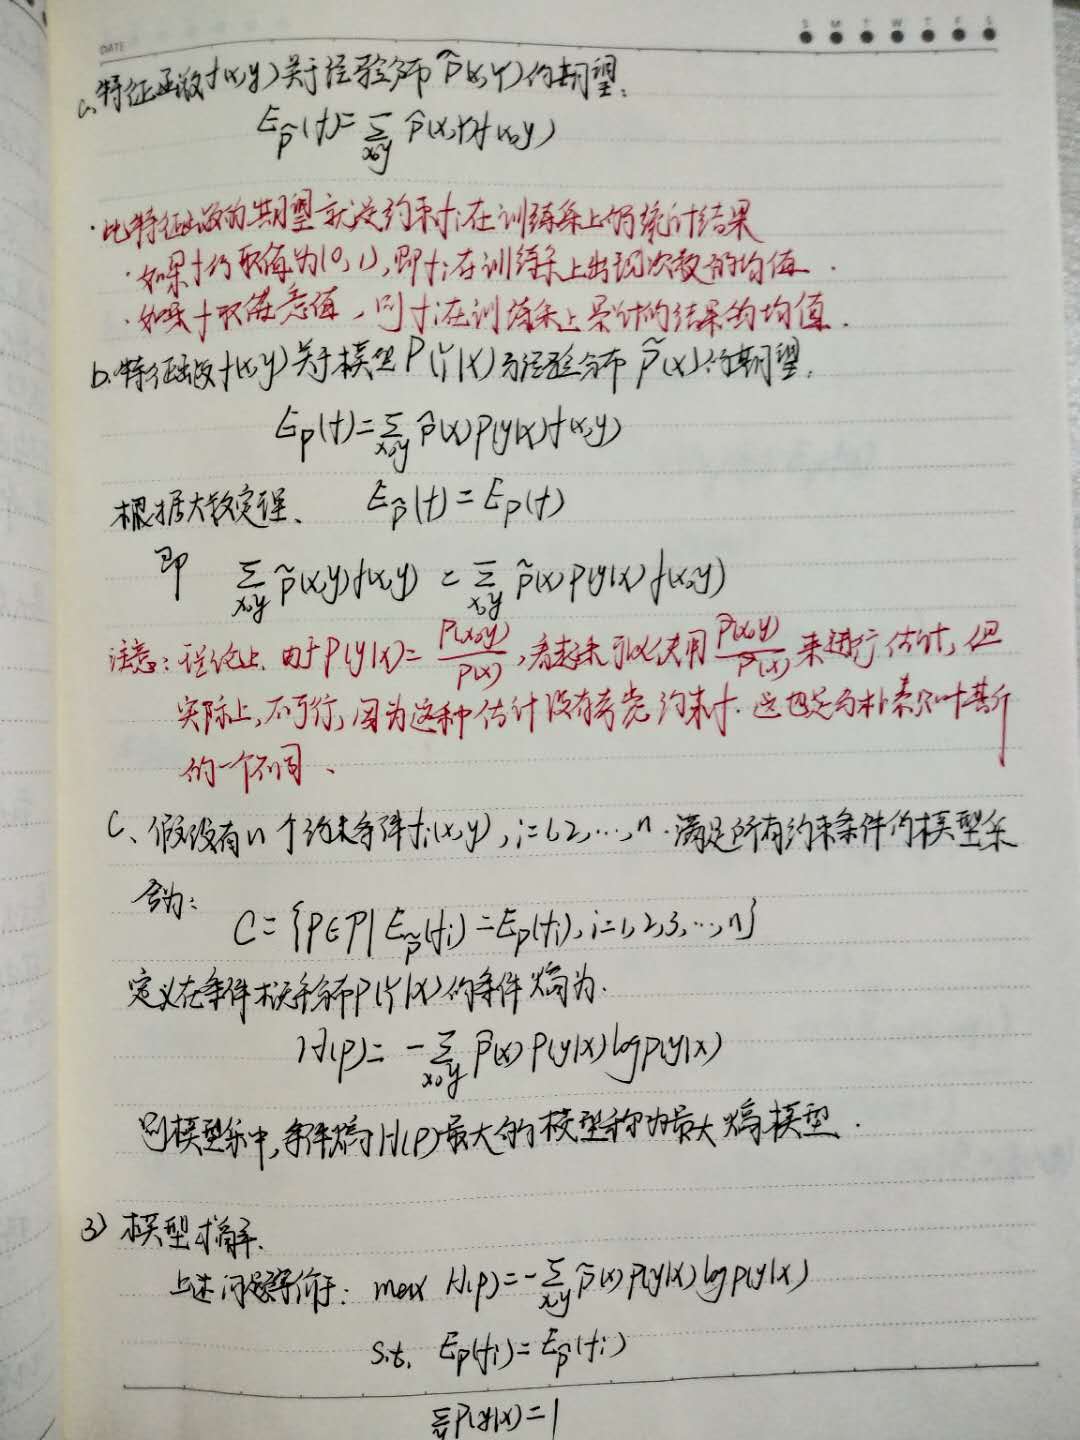 DATE
S M T W T F S
a、特征函数f(x,y)关于经验分布P̃(x,Y)的期望：
E_P̃(f)=∑_{x,y} P̃(x,Y)f(x,y)
·此特征函数的期望就是约束fi在训练集上的统计结果
·如果fi的取值为(0,1),即fi在训练集上出现次数的均值.
·如果f取任意值，则fi在训练集上累计的结果的均值.
b.特征函数f(x,y)关于模型P(Y|X)与经验分布P̃(x)的期望.
E_P(f)=∑_{x,y} P̃(x)P(y|x)f(x,y)
根据大数定理、 E_P̃(f)=E_P(f)
即 ∑_{x,y} P̃(x,y)f(x,y) = ∑_{x,y} P̃(x)P(y|x)f(x,y)
注意：理论上 由于P(y|x)= P(x,y)/P(x) ,看起来可以使用 P(x,y)/P(x) 来进行估计,但
实际上,不可行,因为这种估计没有考虑约束f.这也是与朴素贝叶斯
的一个不同、
C、假设有n个约束条件fi(x,y),i=1,2,…,n.满足所有约束条件的模型集
合为：
C={P∈P|E_P̃(fi)=E_P(fi),i=1,2,3,…,n}
定义在条件概率分布P(Y|X)的条件熵为.
H(P)= -∑_{x,y} P̃(x)P(y|x)logP(y|x)
则模型集中,条件熵H(P)最大的模型称为最大熵模型.
3）模型求解.
上述问题等价于： max H(P)=-∑_{x,y} P̃(x)P(y|x)logP(y|x)
s.t. E_P(fi)=E_P̃(fi)
∑_y P(y|x)=1